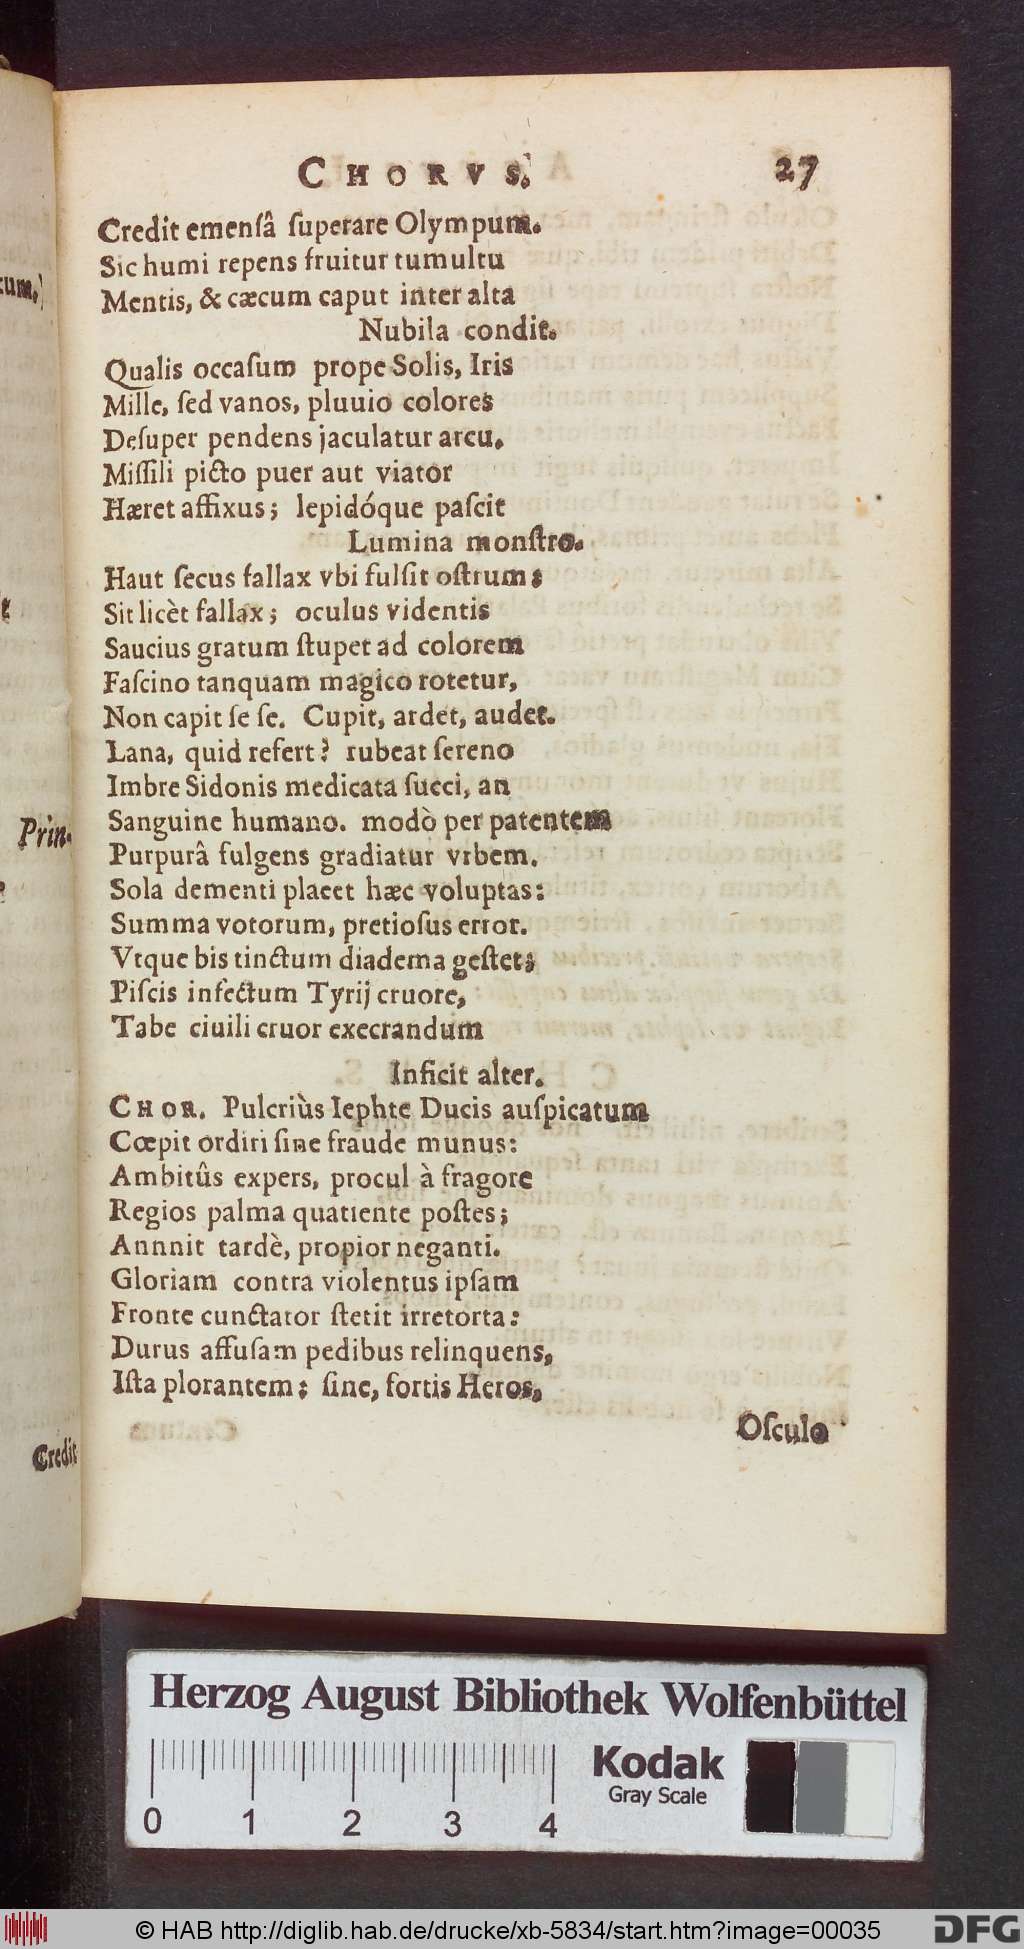 CHORVS. 27
Credit emensâ ſuperare Olympum.
Sic humi repens fruitur tumultu
Mentis, & cæcum caput inter alta
Nubila condit.
Qualis occaſum prope Solis, Iris
Mille, ſed vanos, pluuio colores
Deſuper pendens jaculatur arcu.
Miſſili picto puer aut viator
Hæret affixus; lepidóque paſcit
Lumina monſtro.
Haut ſecus fallax vbi fulſit oſtrum;
Sit licèt fallax; oculus videntis
Saucius gratum ſtupet ad colorem
Faſcino tanquam magico rotetur,
Non capit ſe ſe. Cupit, ardet, audet.
Lana, quid refert? rubeat ſereno
Imbre Sidonis medicata ſucci, an
Sanguine humano. modò per patentem
Purpurâ fulgens gradiatur vrbem.
Sola dementi placet hæc voluptas:
Summa votorum, pretioſus error.
Vtque bis tinctum diadema geſtet;
Piſcis infectum Tyrij cruore,
Tabe ciuili cruor execrandum
Inficit alter.
CHOR. Pulcriùs Iephte Ducis auſpicatum
Cœpit ordiri ſine fraude munus:
Ambitûs expers, procul à fragore
Regios palma quatiente poſtes;
Annnit tardè, propior neganti.
Gloriam contra violentus ipſam
Fronte cunctator ſtetit irretorta:
Durus affuſam pedibus relinquens,
Iſta plorantem; ſine, fortis Heros,
Oſculo
Prin-
Credit
Herzog August Bibliothek Wolfenbüttel
Kodak
Gray Scale
0 1 2 3 4
© HAB http://diglib.hab.de/drucke/xb-5834/start.htm?image=00035
DFG